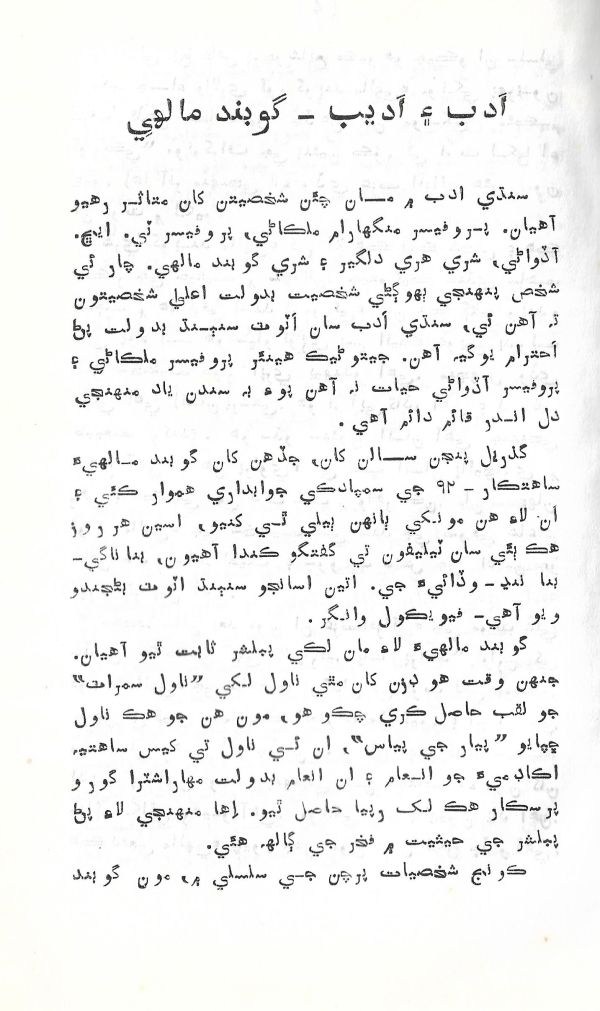 اَدب ۽ اَديب ـ گوبند مالهي
سنڌي ادب ۾ مـــان چئن شخصيتن کان متاثـر رهيو
آهيان. پـروفيسر منگهارام ملڪاڻي، پروفيسر ٽي. ايڇ.
آڏواڻي، شري هري دلگير ۽ شري گوبند مالهي. چار ئي
شخص پنهنجي بهوڳڻي شخصيت بدولت اعليٰ شخصيتون
تہ آهن ئي، سنڌي اَدب سان اَٽوٽ سنٻنڌ بدولت پڻ
اَحترام يوگيہ آهن. جيتوڻيڪ هينئر پروفيسر ملڪاڻي ۽
پروفيسر آڏواڻي حيات نہ آهن پوءِ بہ سندن ياد منهنجي
دل انـدر قائم دائم آهي.
گذريل پنجن ســالن کان، جڏهن کان گوبند مـالهيءَ
ساهتڪار ـ ۹۲ جي سمپادڪي جوابداري هموار ڪئي ۽
اُن لاءِ هن مونکي ٻانهن ٻيلي ٿـي کنيو، اسين هر روز
هڪ ٻئي سان ٽيليفون تي گفتگو ڪندا آهيون، بنا ناگي-
بنا ننڍ ـ وڏائيءَ جي. ائين اسانجو سنٻنڌ اٽوٽ بڻجندو
ويو آهي- فيويڪول وانگر.
گوبند مالهيءَ لاءِ مان لڪي پبلشر ثابت ٿيو آهيان.
جنهن وقت هو ڊزن کان مٿي ناول لکي ”ناول سمراٽ“
جو لقب حاصل ڪري چڪو هو، مون هن جو هڪ ناول
ڇپايو ”پيار جي پياس“، ان ئـي ناول تي کيس ساهتيہ
اڪاڊميءَ جو انـعام ۽ ان انعام بدولت مهاراشٽرا گورو
پرسڪار هڪ لک رپيا حاصل ٿيو. اِها منهنجي لاءِ پڻ
پبلشر جي حيثيت ۾ فخر جي ڳالهہ هئي.
ڪونج شخصيات پرچن جـي سلسلي ۾، مون گوبند